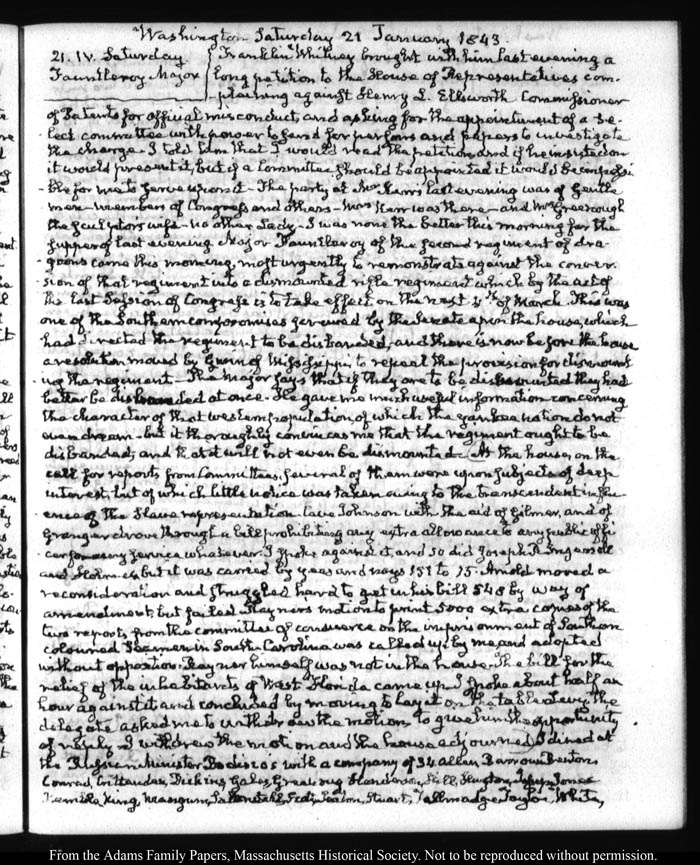 Washington Saturday 21 January 1843.
21. IV. Saturday
Fauntleroy Major
Franklin Whitney brought with him last evening a
long petition to the House of Representatives com-
plaining against Henry L. Ellsworth Commissioner
of Patents for official misconduct, and asking for the appointment of a se-
lect committee with power to send for persons and papers to investigate
the charge. I told him that I would read the petition and if he insisted on
it would present it, but if a Committee should be appointed it would be impossi-
ble for me to serve upon it. The party at Mr Kerr's last evening was of Gentle
men members of Congress and others. Mrs Kerr was there and Mrs Greenough
the Sculptor's wife no other Lady. I was none the better this morning for the
supper of last evening. Major Fauntleroy of the second regiment of dra-
goons came this morning, most urgently to remonstrate against the conver-
sion of that regiment into a dismounted rifle regiment which by the act of
the last Session of Congress is to take effect on the next 4th of March. This was
one of the Southern compromises screwed by the Senate upon the house, which
had directed the regiment to be disbanded, and there is now before the house
a resolution moved by Gwin of Mississippi to repeal the provision for dismount
ing the regiment. The Major says that if they are to be dismounted they had
better be disbanded at once. He gave me much useful information concerning
the character of that western population, of which the yankee nation do not
even dream. but it thoroughly convinces me that the regiment ought to be
disbanded; and that it will not even be dismounted. At the house, on the
call for reports from Committees, several of them were upon subjects of deep
interest, but of which little notice was taken owing to the transcendent influ-
ence of the Slave representation. Cave Johnson with the aid of Gilmer, and of
Granger drove through a bill prohibiting any extra allowance to any public offi
cer for any service whatever. I spoke against it, and so did Joseph R. Ingersoll
and Holmes but it was carried by yeas and nays 151 to 15. Arnold moved a
reconsideration and struggled hard to get in his bill 548 by way of
amendment, but failed. Rayner's motion to print 5000 extra copies of the
two reports from the committee of commerce on the imprisonment of Southern
coloured Seamen in South Carolina was called up by me and adopted
without opposition. Rayner himself was not in the house. The bill for the
relief of the inhabitants of West Florida came up. I spoke about half an
hour against it and concluded by moving to lay it on the table. Levy the
delegate asked me to withdraw the motion, to give him the opportunity
of reply. I withdrew the motion and the house adjourned. I dined at
the Russian Minister Bodisco's with a company of 34 Allen Barrow Benton
Conrad, Crittenden, Dickins Gales, Henderson, Hill, Huston, Jones
King, Mangum, Seaton, Stuart, Tallmadge Taylor, White,
From the Adams Family Papers, Massachusetts Historical Society. Not to be reproduced without permission.